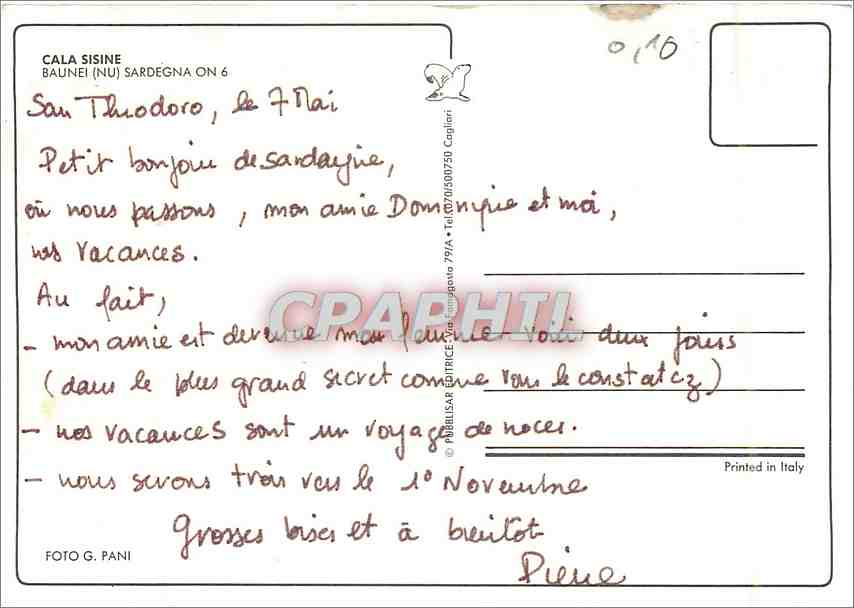 CALA SISINE
BAUNEI (NU) SARDEGNA ON 6
0,10
San Théodoro, le 7 Mai
Petit bonjour de Sardaigne,
où nous passons, mon amie Dominique et moi,
nos vacances.
Au fait,
- mon amie est devenue ma femme voici deux jours
(dans le plus grand secret comme vous le constatez)
- nos vacances sont un voyage de noces.
- nous serons trois vers le 1° Novembre
Grosses bises et à bientôt
Pierre
© PUBBLISAR EDITRICE • Via Famagosta 79/A • Tel. 070/500750 Cagliari
CPAPHIL
Printed in Italy
FOTO G. PANI